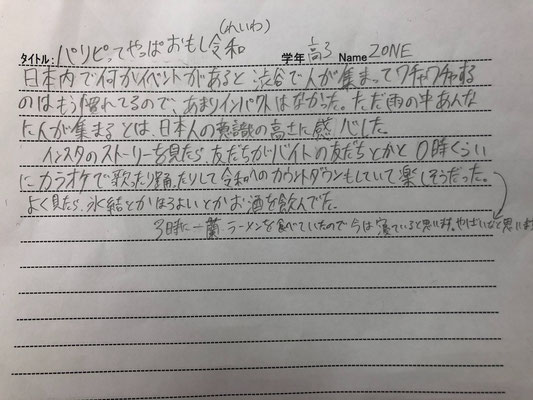 (れいわ)
タイトル: パリピってやっぱおもし令和 学年 高3 Name ZONE
日本内で何かイベントがあると渋谷で人が集まってワチャワチャする
のはもう慣れてるので、あまりインパクトはなかった。ただ雨の中あんな
に人が集まるとは、日本人の意識の高さに感心した。
インスタのストーリーを見たら、友だちがバイトの友だちとかと0時くらい
にカラオケで歌ったり踊ったりして令和へのカウントダウンをしていて楽しそうだった。
よく見たら、氷結とかほろよいとかお酒を飲んでた。
3時に一蘭ラーメンを食べていたので今は寝ていると思います。やばいなと思います